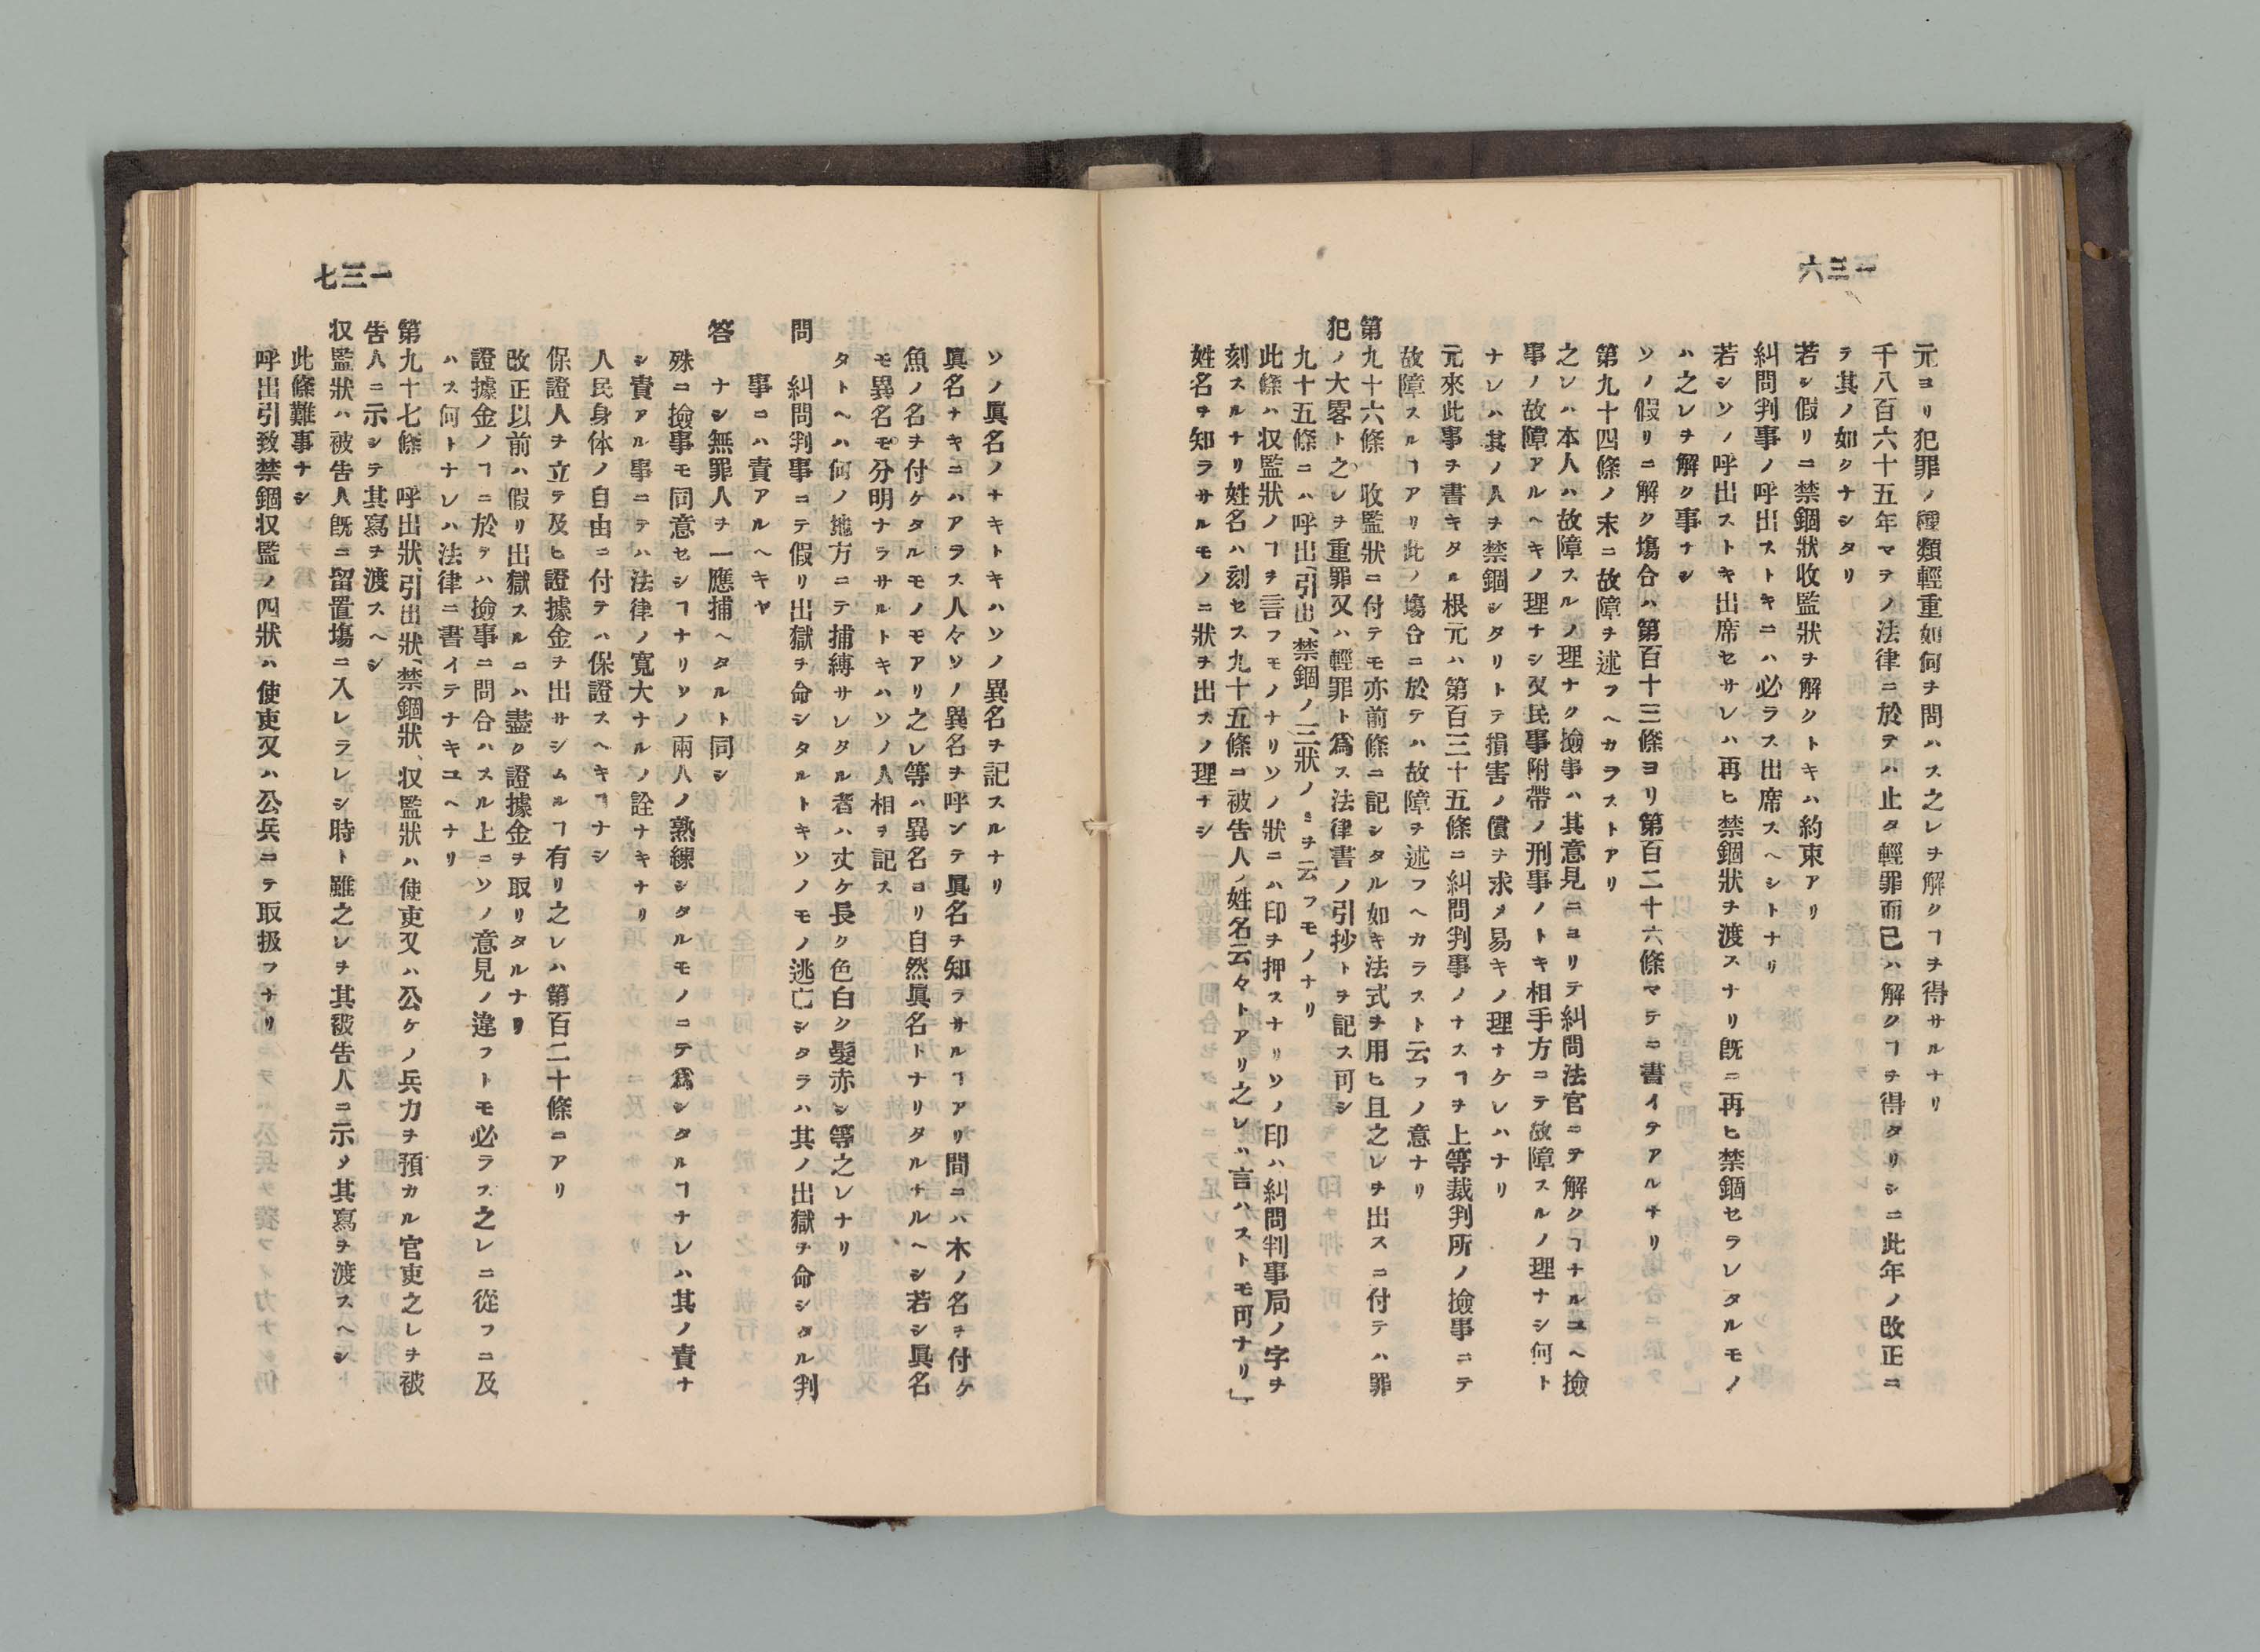 一三六
元ヨリ犯罪ノ種類輕重如何ヲ問ハス之レヲ解クヿヲ得サルナリ
千八百六十五年マテノ法律ニ於テハ止タ輕罪而已ハ解クヿヲ得タリシニ此年ノ改正ニ
テ其ノ如クナシタリ
若シ假リニ禁錮狀收監狀ヲ解クトキハ約束アリ
糾問判事ノ呼出ストキニハ必ラス出席スヘシトナリ
若シソノ呼出ストキ出席セサレハ再ヒ禁錮狀ヲ渡スナリ既ニ再ヒ禁錮セラレタルモノ
ハ之レヲ解ク事ナシ
ソノ假リニ解ク塲合ハ第百十三條ヨリ第百二十六條マテニ書イテアルナリ
第九十四條ノ末ニ故障ヲ述フヘカラストアリ
之レハ本人ハ故障スルノ理ナク撿事ハ其意見ニヨリテ糾問法官ニテ解クヿナルユヘ撿
事ノ故障アルヘキノ理ナシ又民事附帶ノ刑事ノトキ相手方ニテ故障スルノ理ナシ何ト
ナレハ其ノ人ヲ禁錮シタリトテ損害ノ償ヲ求メ易キノ理ナケレハナリ
元來此事ヲ書キタル根元ハ第百三十五條ニ糾問判事ノナスヿヲ上等裁判所ノ撿事ニテ
故障スルヿアリ此ノ塲合ニ於テハ故障ヲ述フヘカラスト云フノ意ナリ
第九十六條　收監狀ニ付テモ亦前條ニ記シタル如キ法式ヲ用ヒ且之レヲ出スニ付テハ罪
犯ノ大畧ト之レヲ重罪又ハ輕罪ト爲ス法律書ノ引抄トヲ記ス可シ
九十五條ニハ呼出、引出、禁錮ノ三狀ノミヲ云フモノナリ
此條ハ収監狀ノヿヲ言フモノナリソノ狀ニハ印ヲ押スナリソノ印ハ糾問判事局ノ字ヲ
刻スルナリ姓名ハ刻セス九十五條ニ被告人ノ姓名云々トアリ之レハ言ハストモ可ナリ」
姓名ヲ知ラサルモノニ狀ヲ出スノ理ナシ
一三七
ソノ眞名ノナキトキハソノ異名ヲ記スルナリ
眞名ナキニハアラス人々ソノ異名ヲ呼ンテ眞名ヲ知ラサルヿアリ間ニハ木ノ名ヲ付ケ
魚ノ名ヲ付ケタルモノモアリ之レ等ハ異名ヨリ自然眞名トナリタルナルヘシ若シ眞名
モ異名モ分明ナラサルトキハソノ人相ヲ記ス
タトヘハ何ノ地方ニテ捕縛サレタル者ハ丈ケ長ク色白ク髮赤シ等之レナリ
問　糾問判事ニテ假リ出獄ヲ命シタルトキソノモノ逃亡シタラハ其ノ出獄ヲ命シタル判
事ニハ責アルヘキヤ
答　ナシ無罪人ヲ一應捕ヘタルト同シ
殊ニ撿事モ同意セシヿナリソノ兩人ノ熟練シタルモノニテ爲シタルヿナレハ其ノ責ナ
シ責アル事ニテハ法律ノ寬大ナルノ詮ナキナリ
人民身体ノ自由ニ付テハ保證スヘキヿナシ
保證人ヲ立テ及ヒ證據金ヲ出サシムルヿ有リ之レハ第百二十條ニアリ
改正以前ハ假リ出獄スルニハ盡ク證據金ヲ取リタルナリ
證據金ノヿニ於テハ撿事ニ問合ハスル上ニソノ意見ノ違フトモ必ラス之レニ從フニ及
ハス何トナレハ法律ニ書イテナキユヘナリ
第九十七條　呼出狀、引出狀、禁錮狀、収監狀ハ使吏又ハ公ケノ兵力ヲ預カル官吏之レヲ被
告人ニ示シテ其寫ヲ渡スヘシ
収監狀ハ被告人既ニ留置塲ニ入レラレシ時ト雖之レヲ其被告人ニ示メ其寫ヲ渡スヘシ
此條難事ナシ
呼出引致禁錮収監ノ四狀ハ使吏又ハ公兵ニテ取扱フナリ